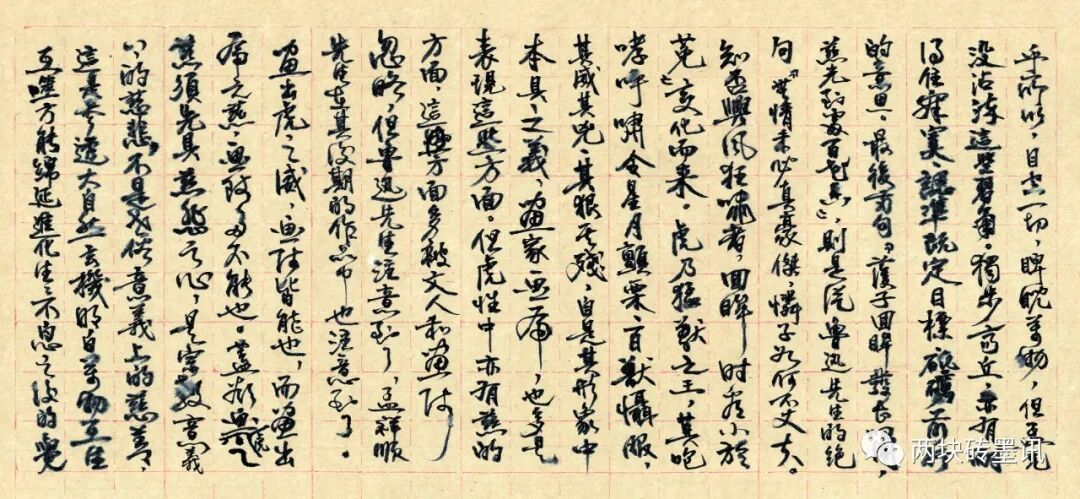 乎所以,目空一切,睥睨萬物,但
没沾染這些習氣。獨步高丘,亦有耐
得住寂寞,認準既定目標,砥礪前行
的意思。最後两句『護子回眸發長嘯,
慈光』,則是從魯迅先生的绝
句『無情未必真豪傑,憐子如何不丈夫。
知否興風狂嘯者,回眸时看小於
菟』变化而来。虎乃猛獸之王,其咆
哮呼嘯令星月顫栗、百獸懾服,
其威其兇、其狠其殘,自是其形象中
本具之義,畫家画虎,也多是
表現這些方面。但虎性中亦有慈的
方面,這些方面多被文人和畫师
忽略,但魯迅先生注意到了,孟祥順
先生在其後期的作品中也注意到了。
畫出虎之威,画师皆能也,而畫出
虎之慈,画师多不能也。蓋欲画虎之
慈須先具慈悲之心,是宗教意義
上的慈悲,不是世俗意義上的慈善,
這是參透大自然玄機明白萬物互生
互 方能綿延進化生生不息之後的覺
两块砖墨讯